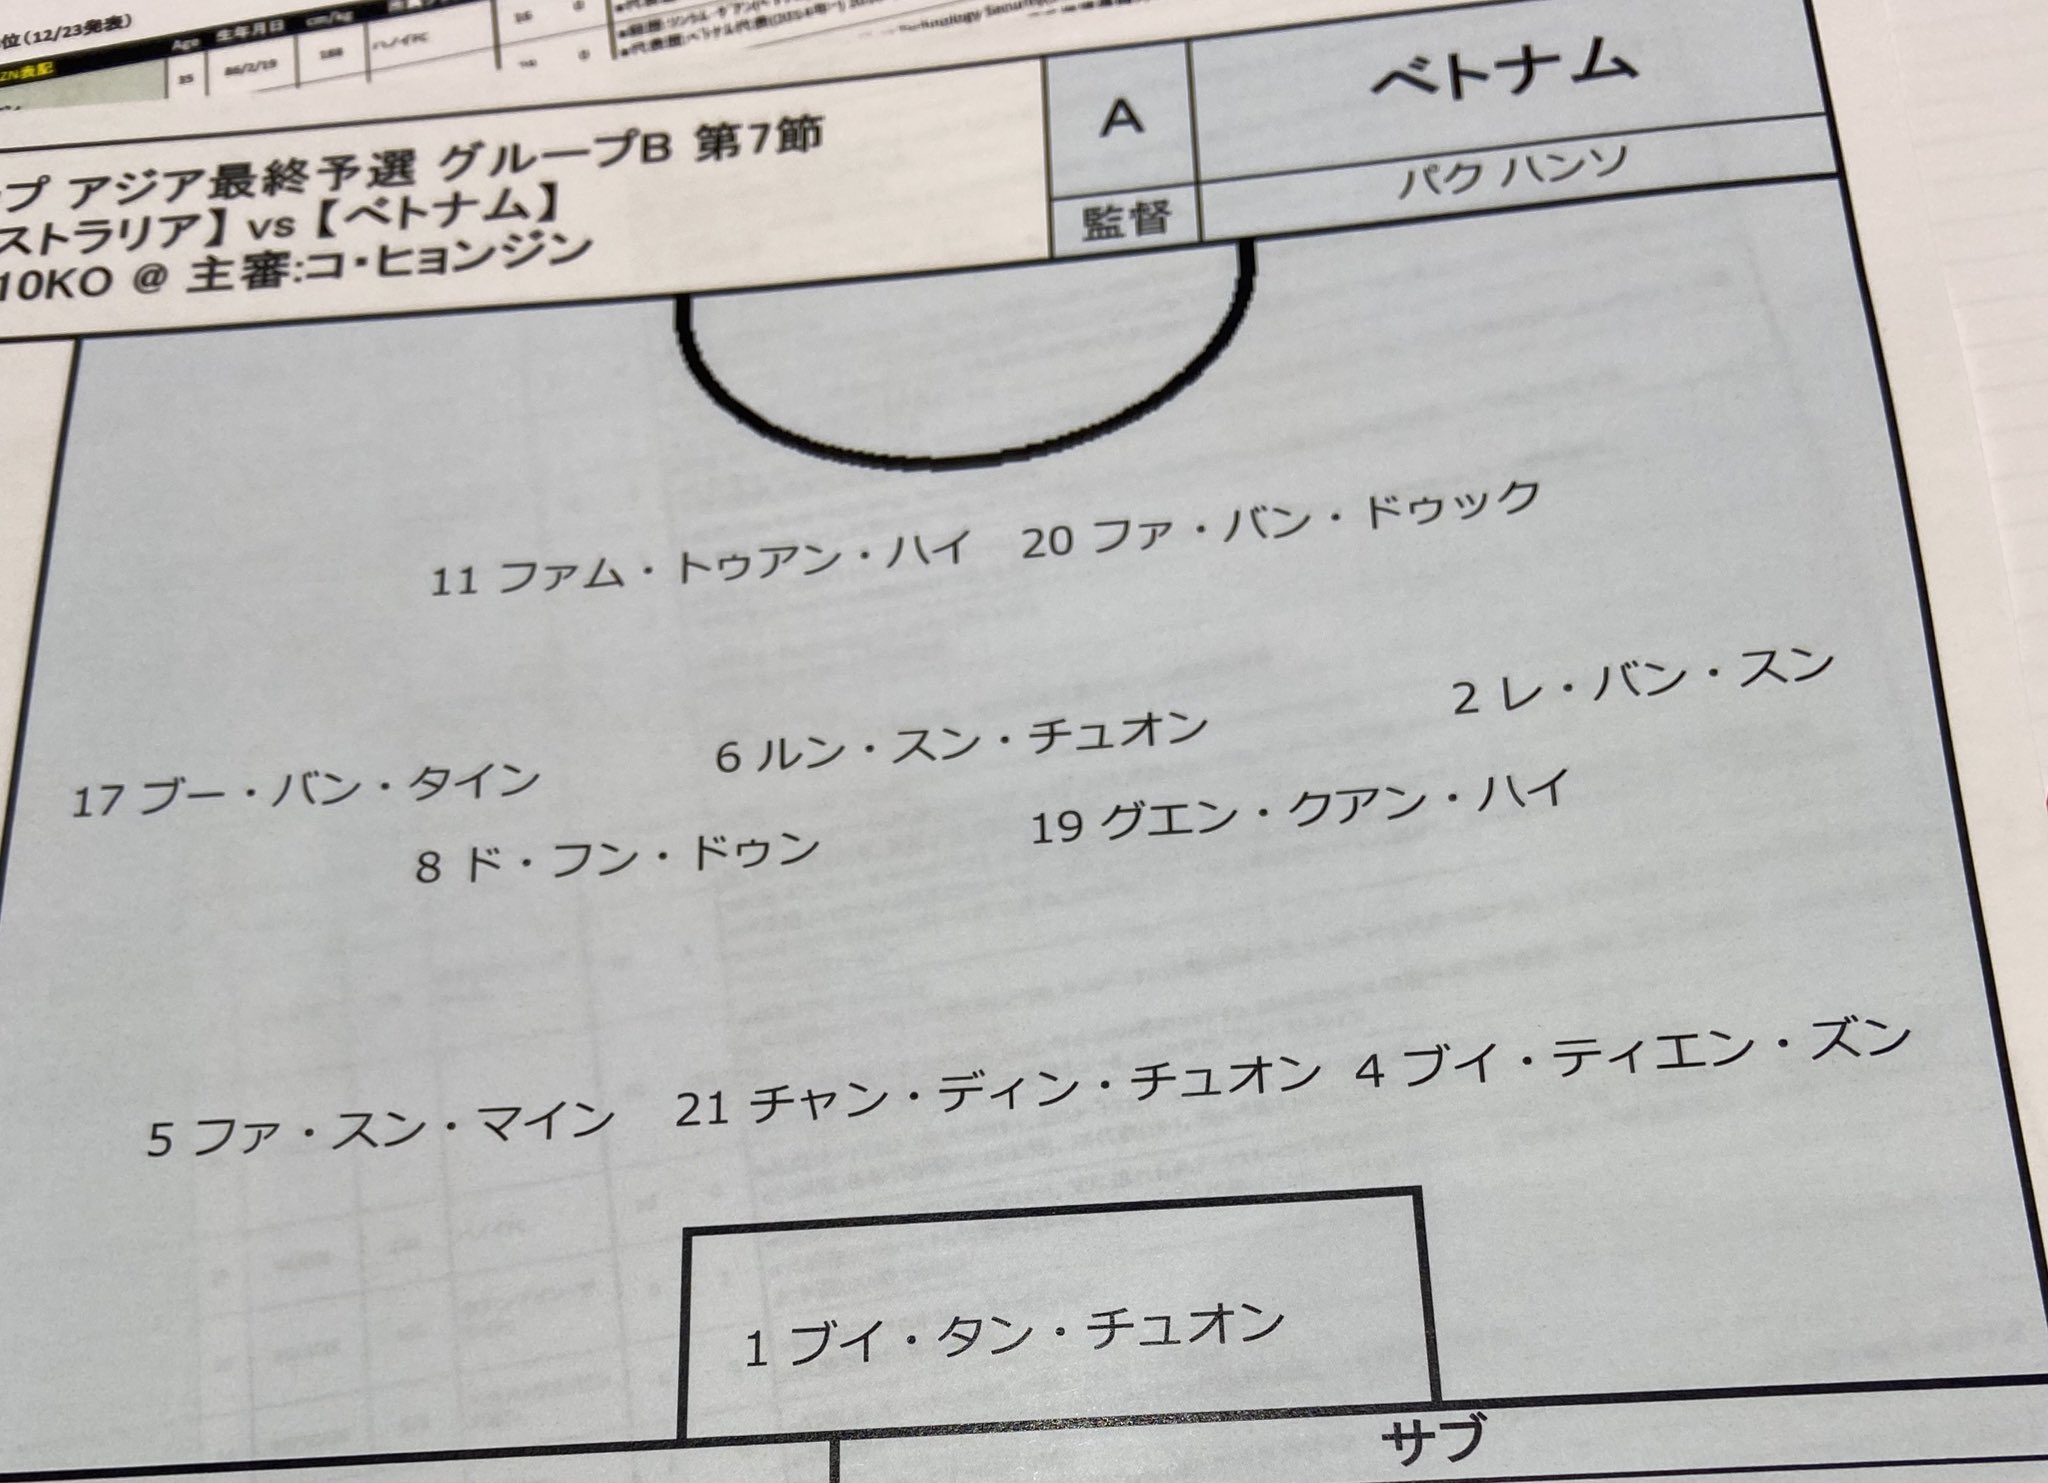 位(12/23発表)
ZN表記
Age 生年月日 cm/kg
35 86/2/19 188 ハノイFC
ープ アジア最終予選 グループB 第7節
ストラリア】vs【ベトナム】
10KO @ 主審:コ・ヒョンジン
A ベトナム
監督 パク ハンソ
11 ファム・トゥアン・ハイ 20 ファ・バン・ドゥック
17 ブー・バン・タイン 6 ルン・スン・チュオン 2 レ・バン・スン
8 ド・フン・ドゥン 19 グエン・クアン・ハイ
5 ファ・スン・マイン 21 チャン・ディン・チュオン 4 ブイ・ティエン・ズン
1 ブイ・タン・チュオン
サブ